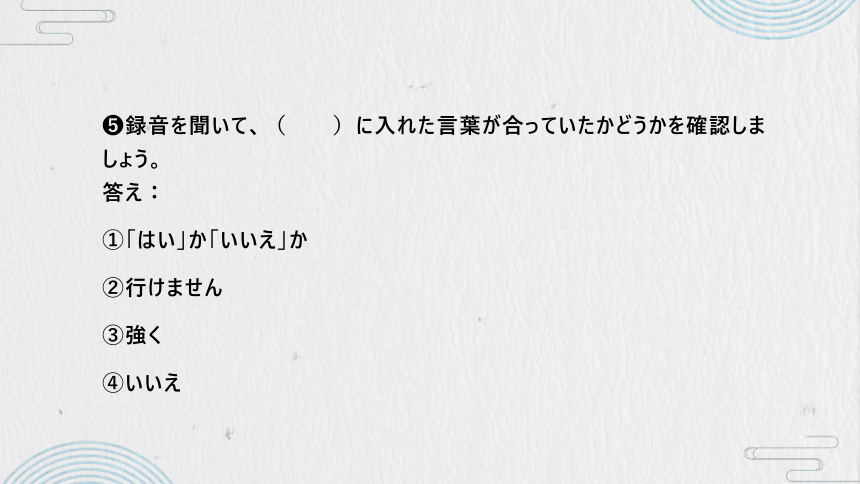 ❺録音を聞いて、（　　）に入れた言葉が合っていたかどうかを確認しま
しょう。
答え：
①「はい」か「いいえ」か
②行けません
③強く
④いいえ